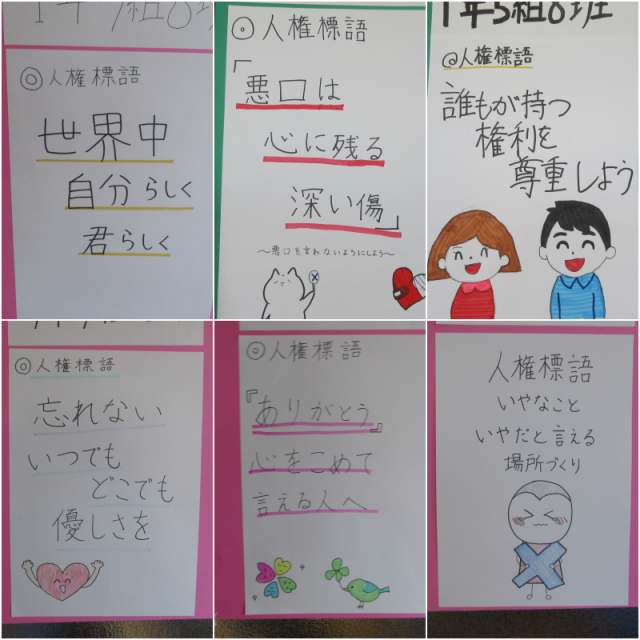 ◎人権標語
世界中
自分らしく
君らしく
◎人権標語
「悪口は
心に残る
深い傷」
～悪口を言わないようにしよう～
1年5組8班
@人権標語
誰もが持つ
権利を
尊重しよう
◎人権標語
忘れない
いつでも
どこでも
優しさを
◎人権標語
『ありがとう』
心をこめて
言える人へ
人権標語
いやなこと
いやだと言える
場所づくり